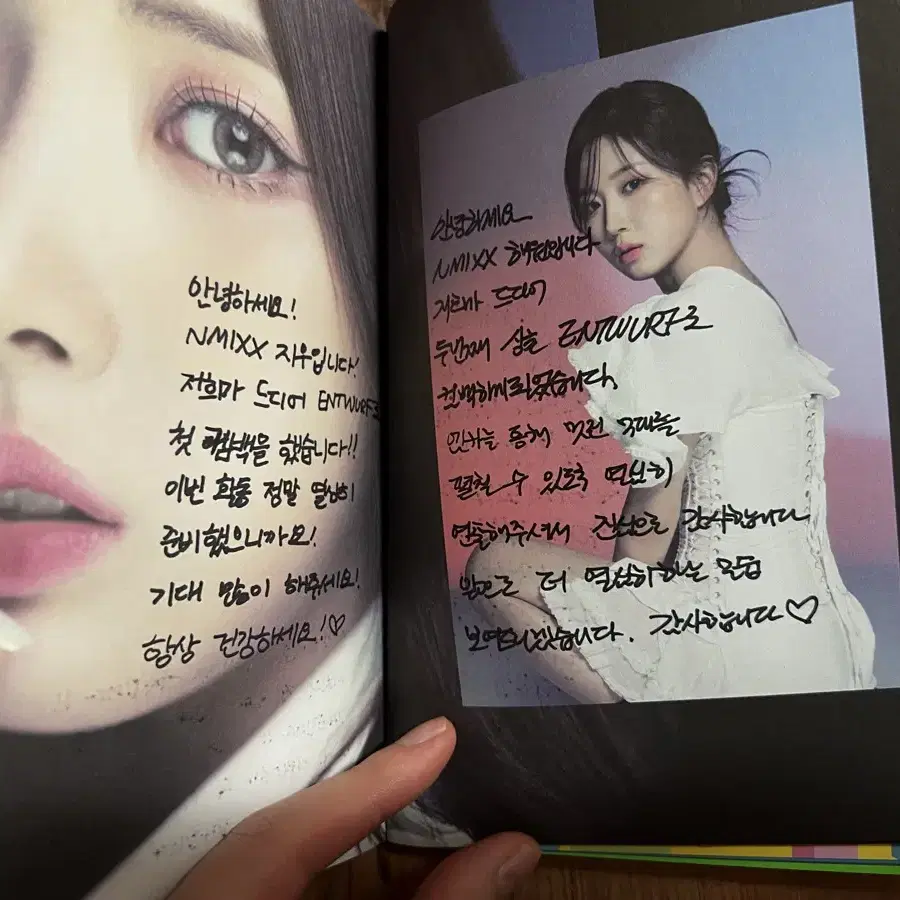 안녕하세요!
NMIXX 지우입니다!
저희가 드디어 ENTWURF로
첫 컴백을 했습니다!!
이번 활동 정말 열심히
준비했으니까요!
기대 많이 해주세요!
항상 건강하세요!♡
안녕하세요
NMIXX 해원입니다
저희가 드디어
두번째 싱글 ENTWURF로
컴백하게되었습니다.
멋진 무대를
펼칠 수 있도록 열심히
연출해주셔서 진심으로 감사합니다
앞으로 더 열심히하는 모습
보여드리겠습니다. 감사합니다♡